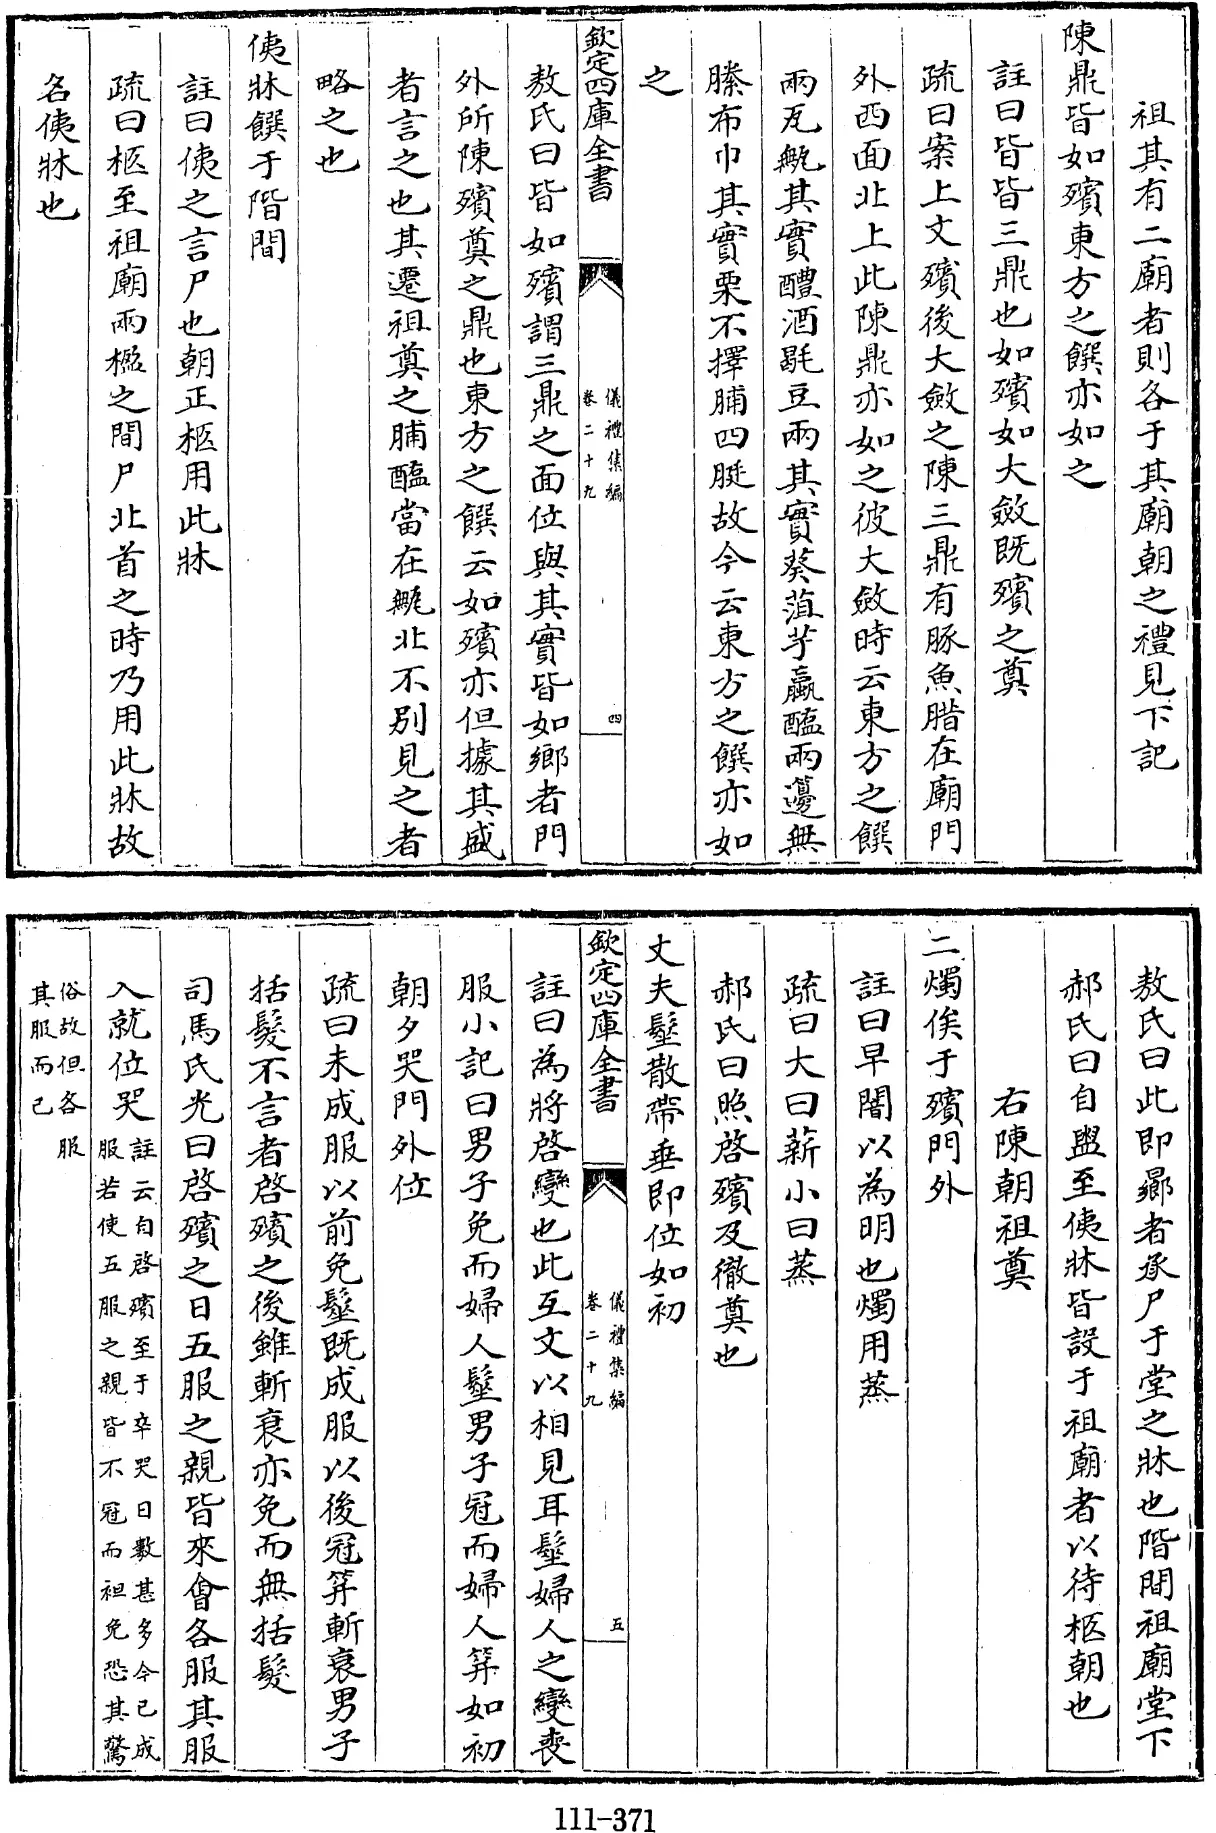 祖其有二廟者則各于其廟朝之禮見下記
陳鼎皆如殯東方之饌亦如之
註曰皆皆三鼎也如殯如大斂既殯之奠
疏曰案上文殯後大斂之陳三鼎有豚魚腊在廟門
外西面北上此陳鼎亦如之彼大斂時云東方之饌
兩瓦甒其實醴酒毼豆兩其實葵菹芋蠃醢兩籩無
縢布巾其實栗不擇脯四脡故今云東方之饌亦如
之
欽定四庫全書
儀禮集編
卷二十九
四
敖氏曰皆如殯謂三鼎之面位與其實皆如鄉者門
外所陳殯奠之鼎也東方之饌云如殯亦但據其盛
者言之也其遷祖奠之脯醢當在甒北不別見之者
略之也
侇牀饌于階間
註曰侇之言尸也朝正柩用此牀
疏曰柩至祖廟兩楹之間尸北首之時乃用此牀故
名侇牀也
敖氏曰此即曏者承尸于堂之牀也階間祖廟堂下
郝氏曰自盥至侇牀皆設于祖廟者以待柩朝也
右陳朝祖奠
二燭俟于殯門外
註曰早闇以為明也燭用蒸
疏曰大曰薪小曰蒸
郝氏曰照啓殯及徹奠也
丈夫髽散帶垂即位如初
欽定四庫全書
儀禮集編
卷二十九
五
註曰為將啓變也此互文以相見耳髽婦人之變喪
服小記曰男子免而婦人髽男子冠而婦人筓如初
朝夕哭門外位
疏曰未成服以前免髽既成服以後冠筓斬衰男子
括髮不言者啓殯之後雖斬衰亦免而無括髮
司馬氏光曰啓殯之日五服之親皆來會各服其服
入就位哭註云自啓殯至于卒哭日數甚多今已成
服若使五服之親皆不冠而袒免恐其驚
俗故但各服
其服而已
111-371